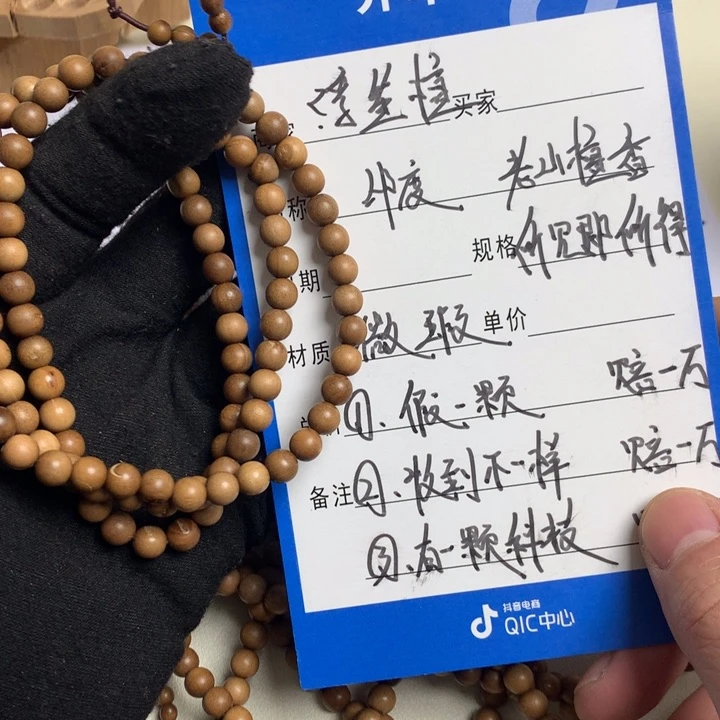 李芝檀 买家
称 印度 老山檀香
期 规格 所见即所得
材质 微瑕 单价
①、假一颗 赔一万
备注 ②、收到不一样 赔一万
③、有一颗科技
抖音电商
QIC中心